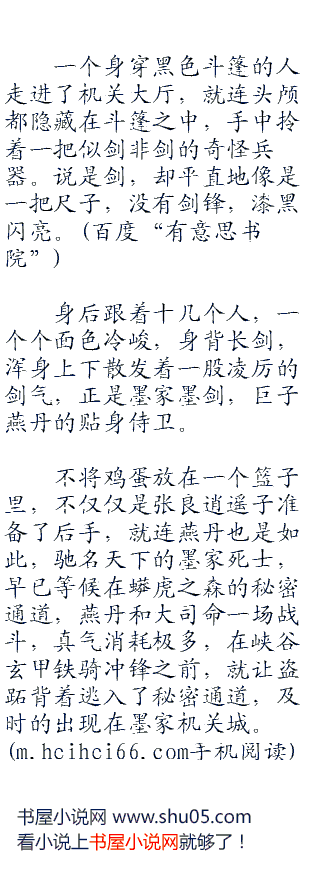 一个身穿黑色斗篷的人
走进了机关大厅，就连头颅
都隐藏在斗篷之中，手中拎
着一把似剑非剑的奇怪兵
器。说是剑，却平直地像是
一把尺子，没有剑锋，漆黑
闪亮。(百度“有意思书
院”)
身后跟着十几个人，一
个个面色冷峻，身背长剑，
浑身上下散发着一股凌厉的
剑气，正是墨家墨剑，巨子
燕丹的贴身侍卫。
不将鸡蛋放在一个篮子
里，不仅仅是张良逍遥子准
备了后手，就连燕丹也是如
此，驰名天下的墨家死士，
早已等候在蟒虎之森的秘密
通道，燕丹和大司命一场战
斗，真气消耗极多，在峡谷
玄甲铁骑冲锋之前，就让盗
跖背着逃入了秘密通道，及
时的出现在墨家机关城。
(m.hcihci66.com手机阅读)
书屋小说网 www.shu05.com
看小说上书屋小说网就够了！